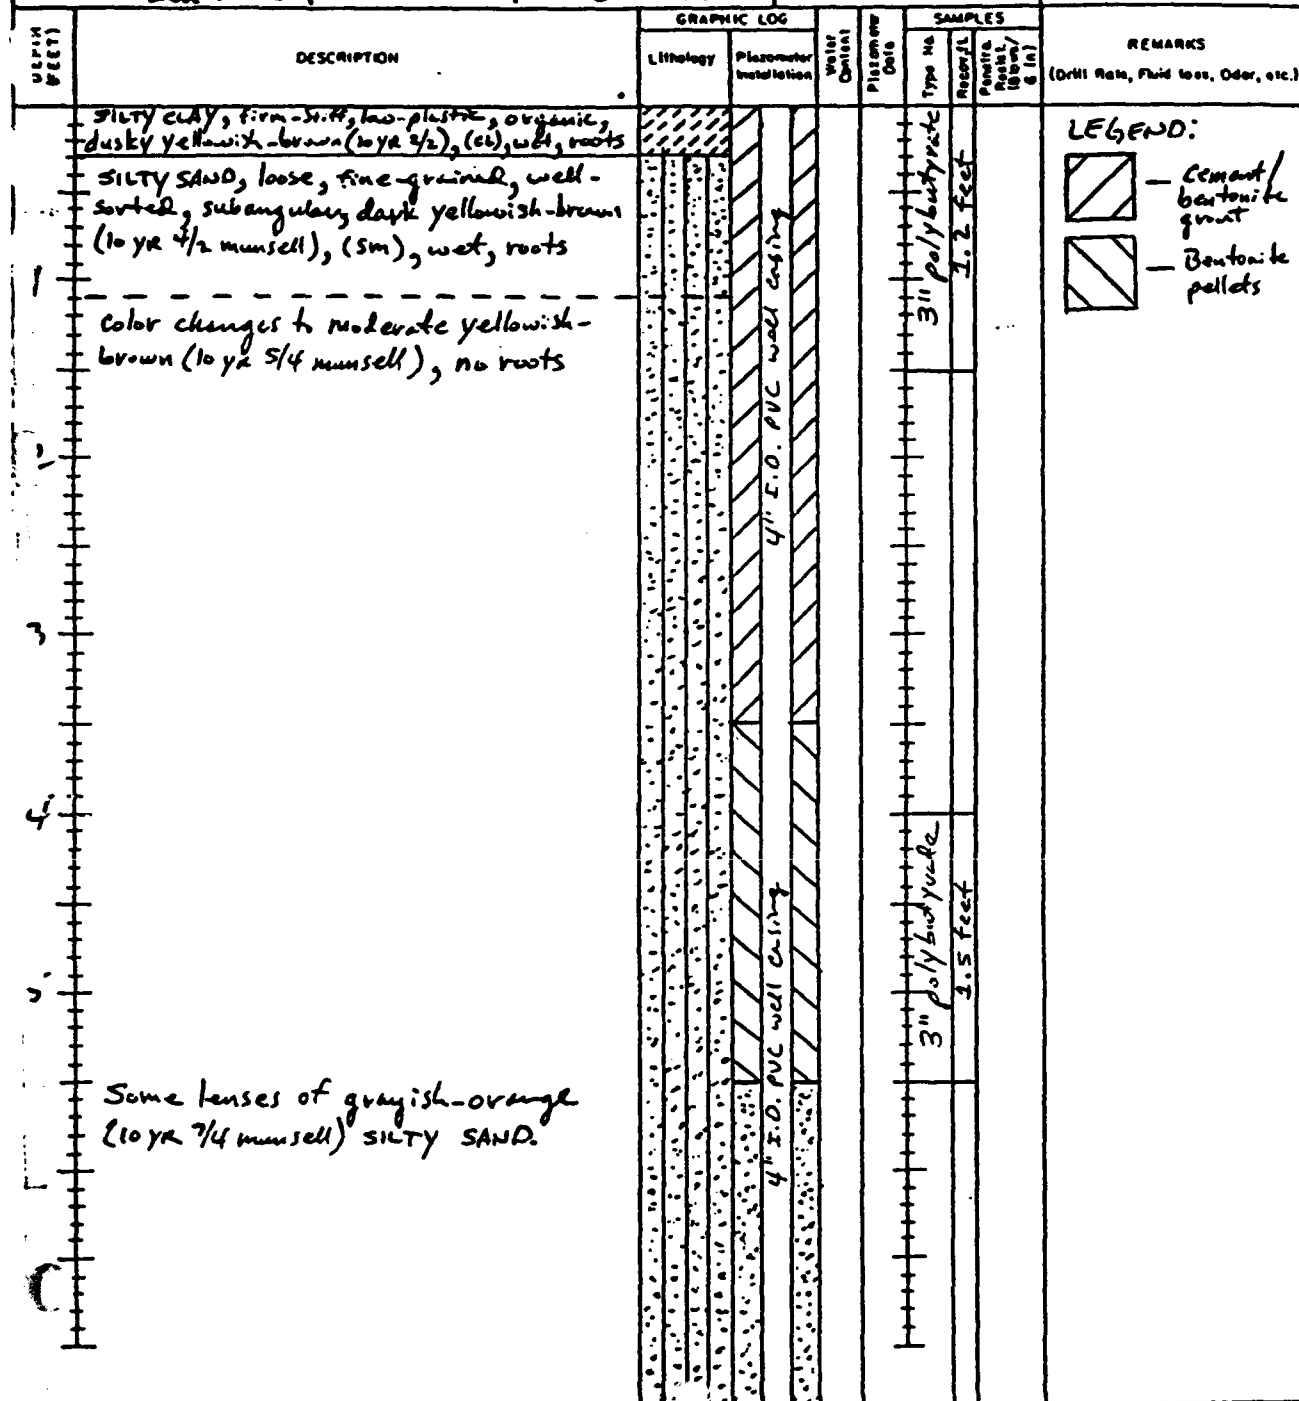 GRAPHIC LOG
SAMPLES
DEPTH
(FEET)
DESCRIPTION
Lithology
Piezometer
Installation
Water
Content
Piezometer
Data
Type No.
REMARKS
(Drill Rate, Fluid loss, Odor, etc.)
SILTY CLAY, firm-stiff, low-plastic, organic,
dusky yellowish-brown (10 YR 2/2), (CL), wet, roots
SILTY SAND, loose, fine-grained, well-
sorted, subangular, dark yellowish-brown
(10 YR 4/2 munsell), (SM), wet, roots
1
color changes to moderate yellowish-
brown (10 YR 5/4 munsell), no roots
3
4
Some lenses of grayish-orange
(10 YR 7/4 munsell) SILTY SAND.
4" I.D. PVC well casing
4" I.D. PVC well casing
3" polybutyrate
1.2 feet
3" polybutyrate
1.5 feet
LEGEND:
— Cement/
bentonite
grout
— Bentonite
pellets